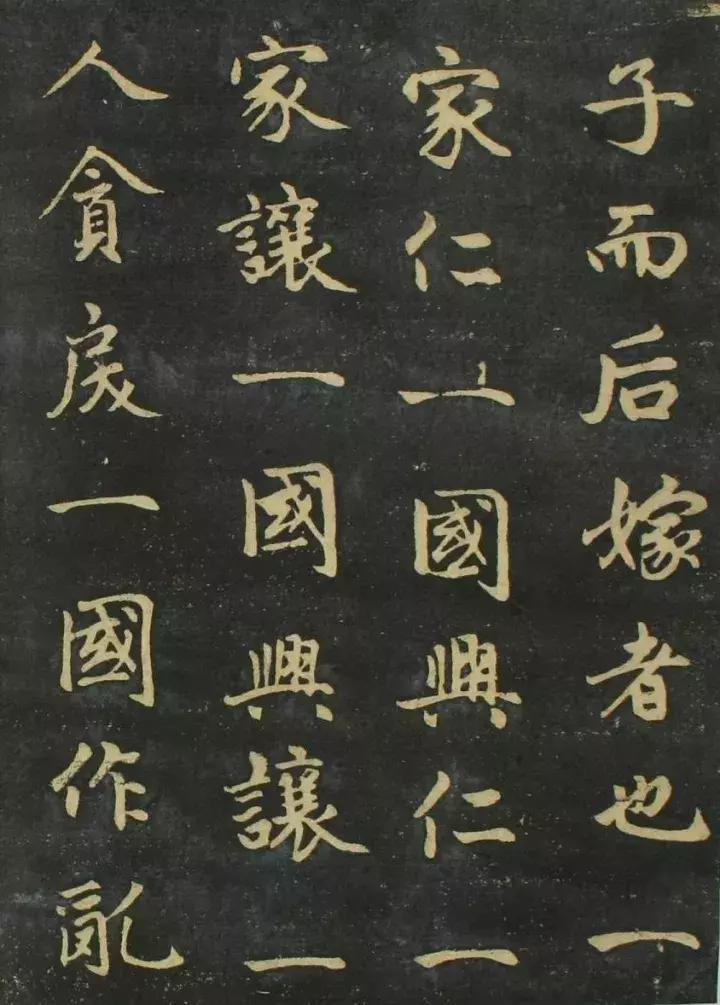 子而后嫁者也一
家仁一國興仁一
家讓一國興讓一
人貪戾一國作亂